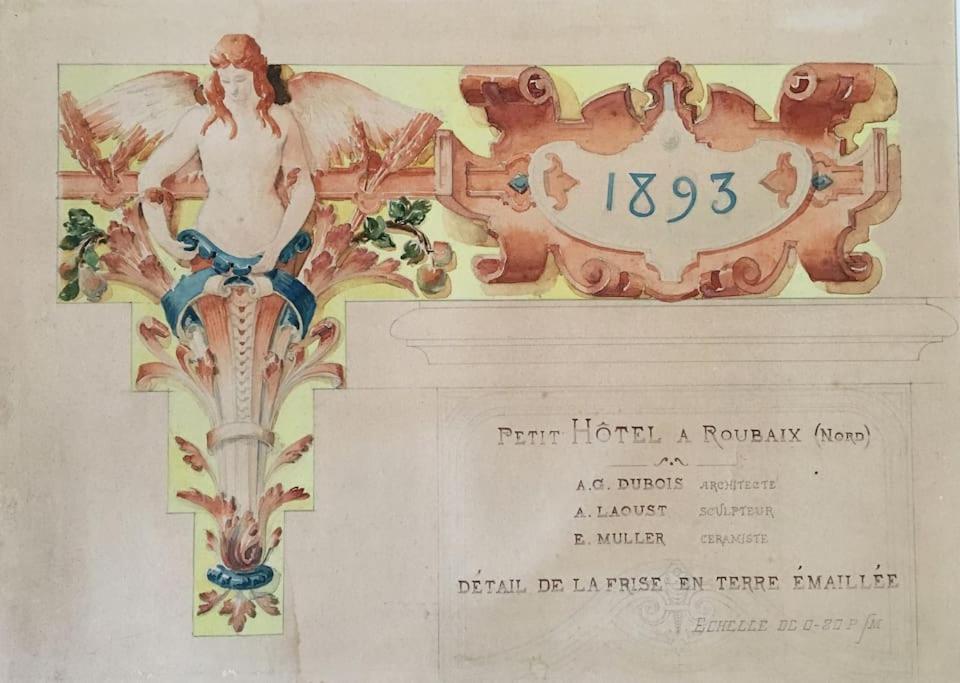 1893
PETIT HÔTEL A ROUBAIX (NORD)
A.G. DUBOIS ARCHITECTE
A. LAOUST SCULPTEUR
E. MULLER CERAMISTE
DÉTAIL DE LA FRISE EN TERRE ÉMAILLÉE
ECHELLE DE 0-20 P